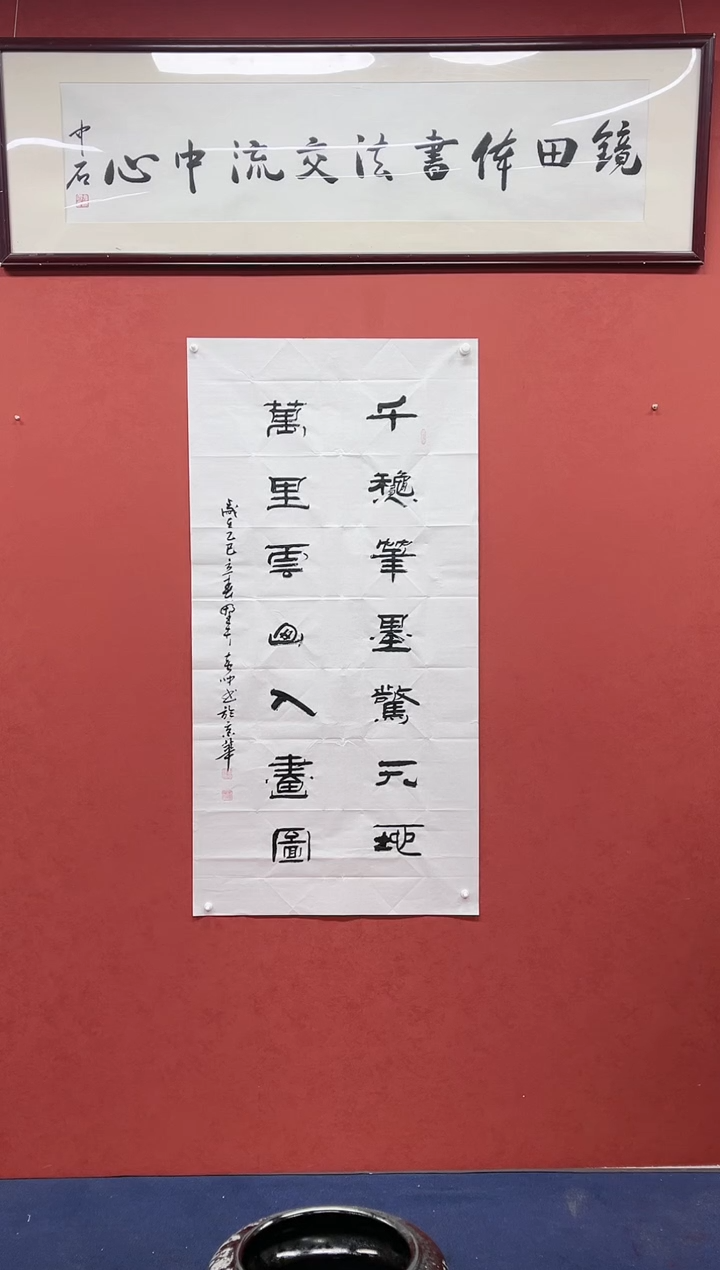 鏡田体書法交流中心
中石
千龝筆墨驚天地
萬里雲山入畫圖
歲在乙巳立春書於京華